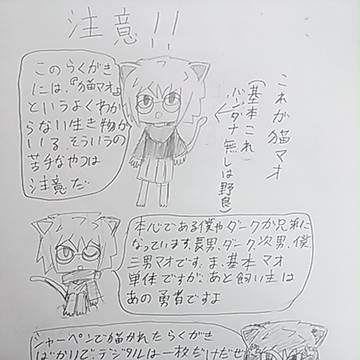 注意!!
このらくがき
には、『猫マオ』
というよくわか
らない生き物が
いる。そういうの
苦手なやつは
注意だ
これが猫マオ
(基本これ
バンダナ無しは野良)
本心である僕やダークが兄弟に
なっています。長男、ダーク、次男、僕
三男マオです。ま、基本マオ
単体ですが。あと飼い主は
あの勇者ですよ
シャーペンで描かれたらくがき
ばかりで、デジタルは一枚だけだぜ